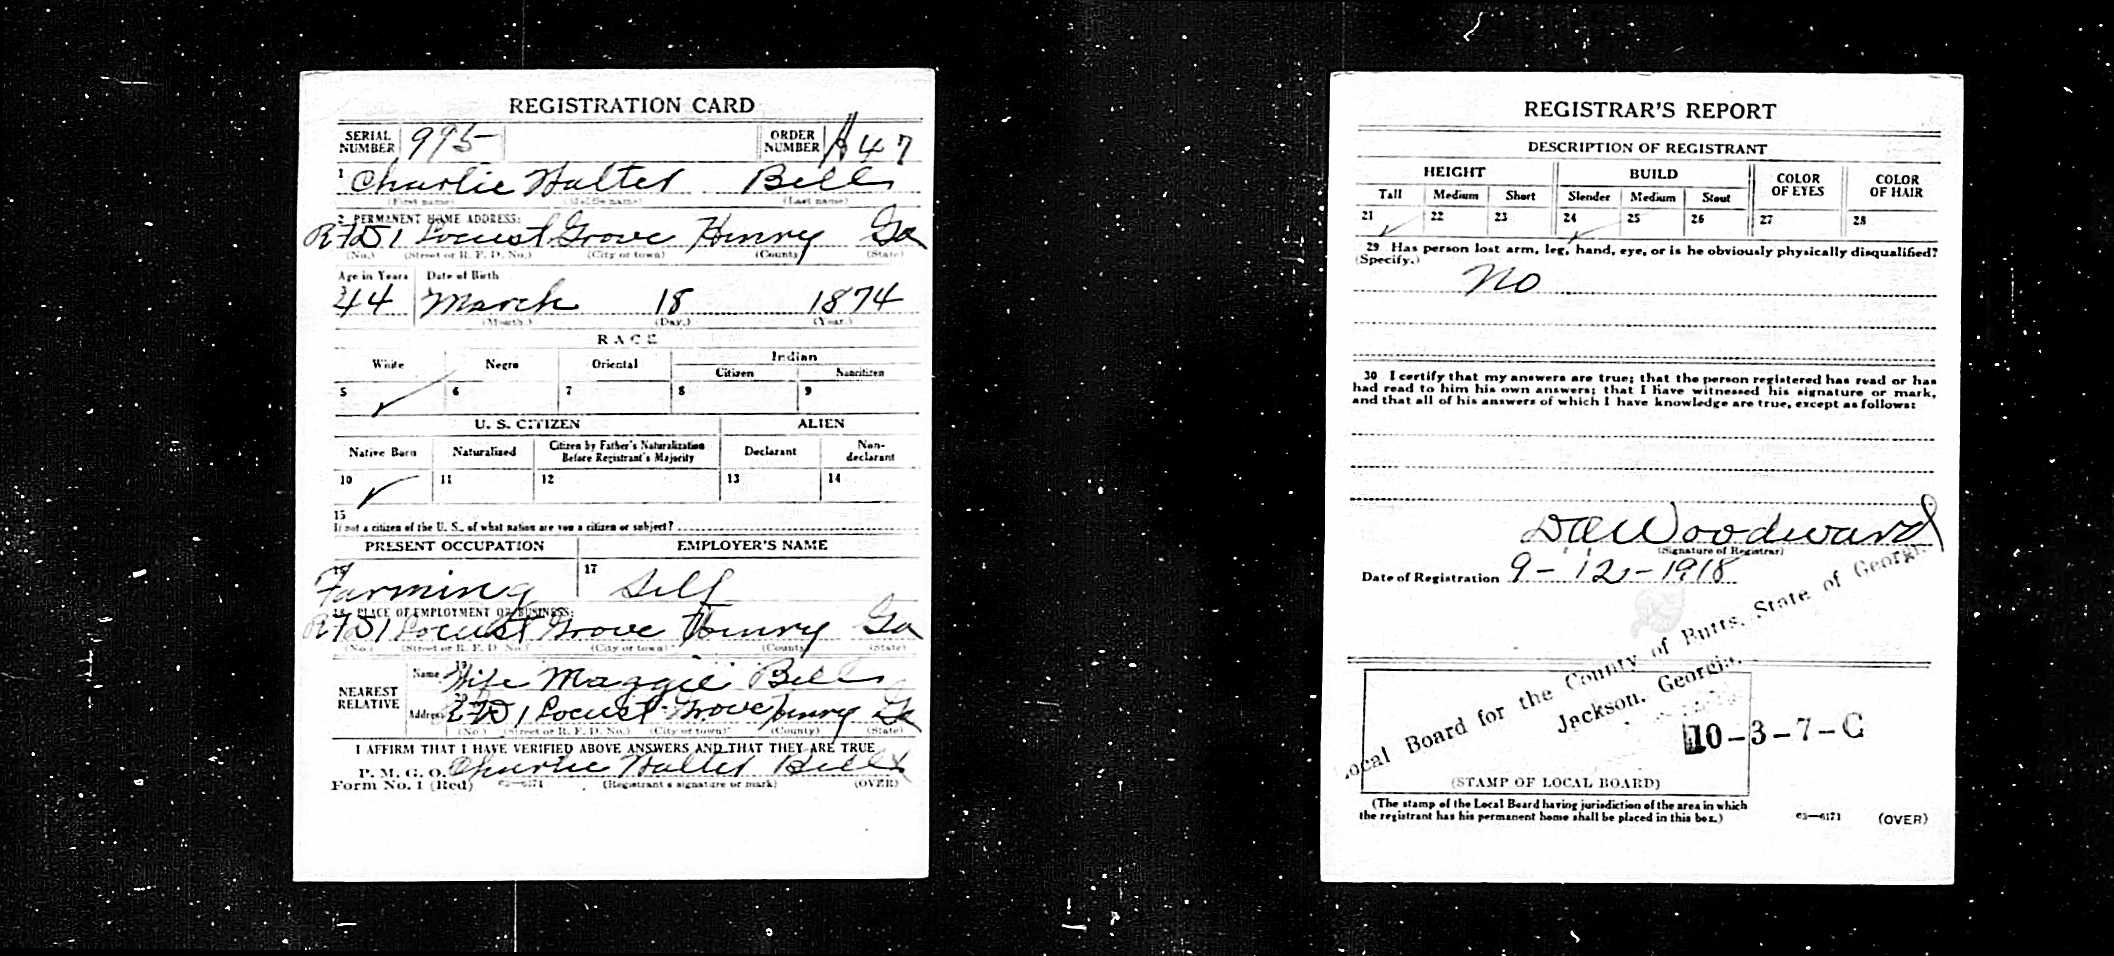 REGISTRATION CARD
SERIAL NUMBER 995 ORDER NUMBER A47
1 Charlie Walter Bells
(First name) (Middle name) (Last name)
2 PERMANENT HOME ADDRESS:
RFD1 Locust Grove Henry Ga
(No.) (Street or R. F. D. No.) (City or town) (County) (State)
Age in Years Date of Birth
3 44 March 18 1874
(Month.) (Day.) (Year.)
RACE
White Negro Oriental Indian
Citizen Noncitizen
5 6 7 8 9
U. S. CITIZEN ALIEN
Native Born Naturalized Citizen by Father's Naturalization Before Registrant's Majority Declarant Non-declarant
10 11 12 13 14
15
If not a citizen of the U. S., of what nation are you a citizen or subject?
PRESENT OCCUPATION EMPLOYER'S NAME
16 Farming 17 Self
18 PLACE OF EMPLOYMENT OR BUSINESS:
RFD1 Locust Grove Henry Ga
(No.) (Street or R. F. D. No.) (City or town) (County) (State)
NEAREST RELATIVE
Name 19 Wife Maggie Bells
Address 20 RFD1 Locust Grove Henry Ga
(No.) (Street or R. F. D. No.) (City or town) (County) (State)
I AFFIRM THAT I HAVE VERIFIED ABOVE ANSWERS AND THAT THEY ARE TRUE
P. M. G. O.
Form No. 1 (Red) 03—6171 Charlie Walter Bells
(Registrant's signature or mark) (OVER)
REGISTRAR'S REPORT
DESCRIPTION OF REGISTRANT
HEIGHT BUILD COLOR OF EYES COLOR OF HAIR
Tall Medium Short Slender Medium Stout
21 22 23 24 25 26 27 28
29 Has person lost arm, leg, hand, eye, or is he obviously physically disqualified?
(Specify.) No
30 I certify that my answers are true; that the person registered has read or has
had read to him his own answers; that I have witnessed his signature or mark,
and that all of his answers of which I have knowledge are true, except as follows:
Woodward
(Signature of Registrar)
Date of Registration 9-12-1918
Local Board for the County of Butts, State of Georgia,
Jackson, Georgia.
10-3-7-C
(STAMP OF LOCAL BOARD)
(The stamp of the Local Board having jurisdiction of the area in which
the registrant has his permanent home shall be placed in this box.)
03—6171 (OVER)